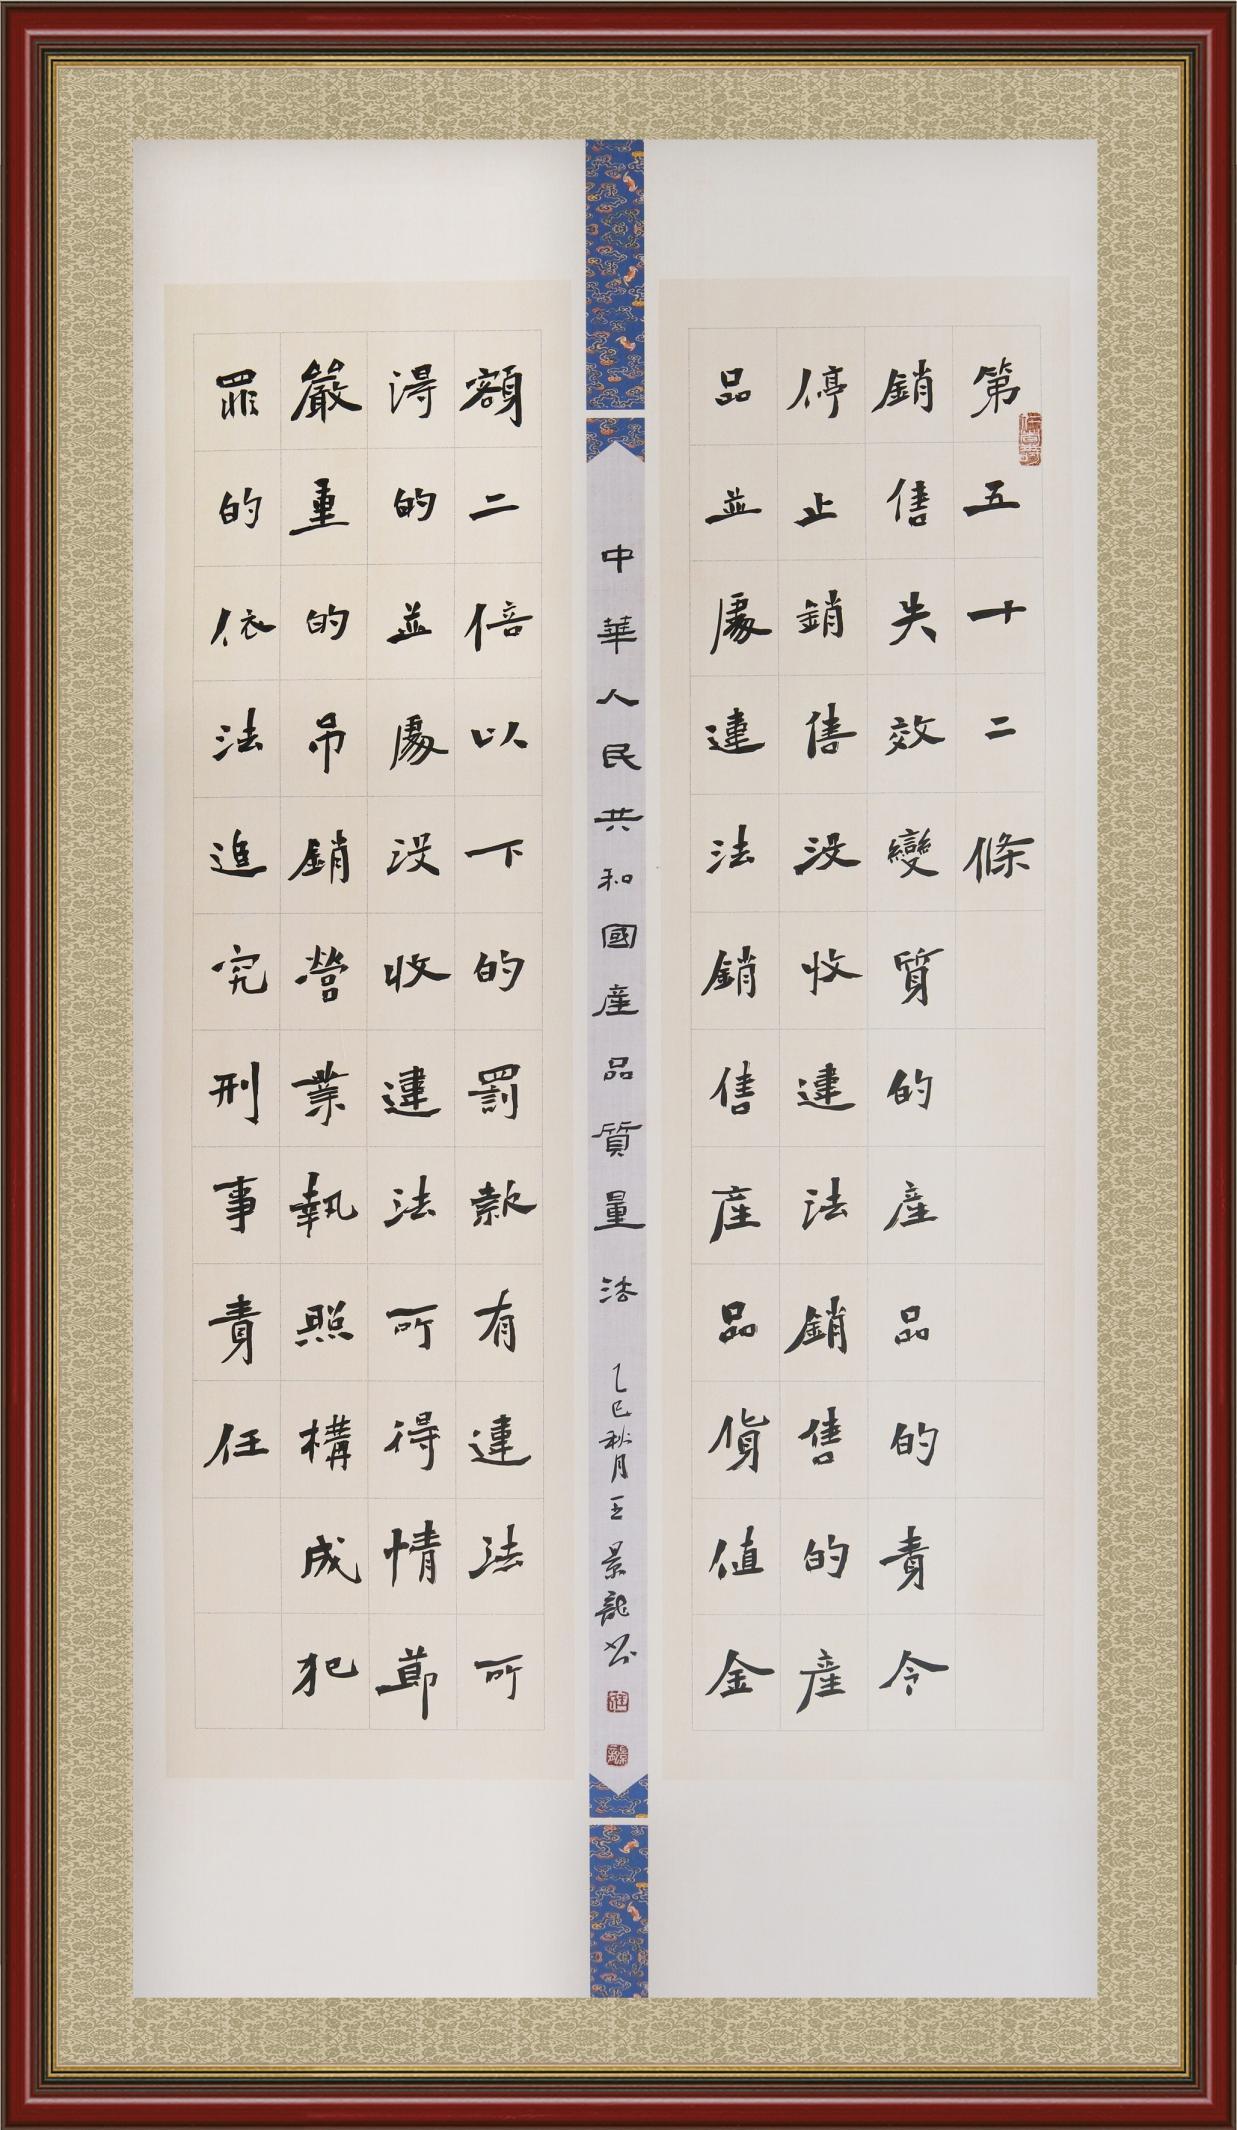 第五十二條
銷售失效變質的産品的責令
停止銷售没收違法銷售的産
品並處違法銷售産品貨值金
中華人民共和國産品質量法 乙巳秋月王景龍書
額二倍以下的罰款有違法所
得的並處没收違法所得情節
嚴重的吊銷營業執照構成犯
罪的依法追究刑事責任